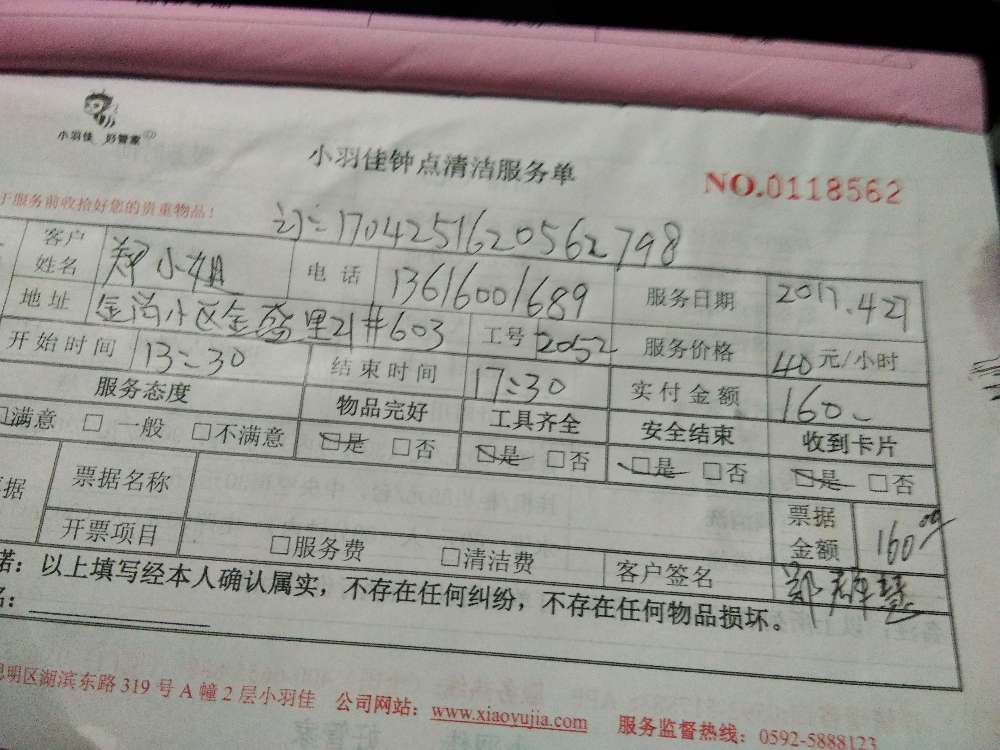 小羽佳 好管家
小羽佳钟点清洁服务单
NO.0118562
于服务前收拾好您的贵重物品!
订:1704251620562798
客户姓名 郑小姐 电话 13616001689 服务日期 2017.4.27
地址 金尚小区金 里21#603 工号 2052 服务价格 40元/小时
开始时间 13:30 结束时间 17:30 实付金额 160
服务态度 物品完好 工具齐全 安全结束 收到卡片
□满意 □一般 □不满意 □是 □否 □是 □否 □是 □否 □是 □否
票据名称 票据金额 160.00
开票项目 □服务费 □清洁费 客户签名 郑群慧
诺:以上填写经本人确认属实,不存在任何纠纷,不存在任何物品损坏。
名:
思明区湖滨东路 319 号 A 幢 2 层小羽佳 公司网站:www.xiaoyujia.com 服务监督热线:0592-5888123